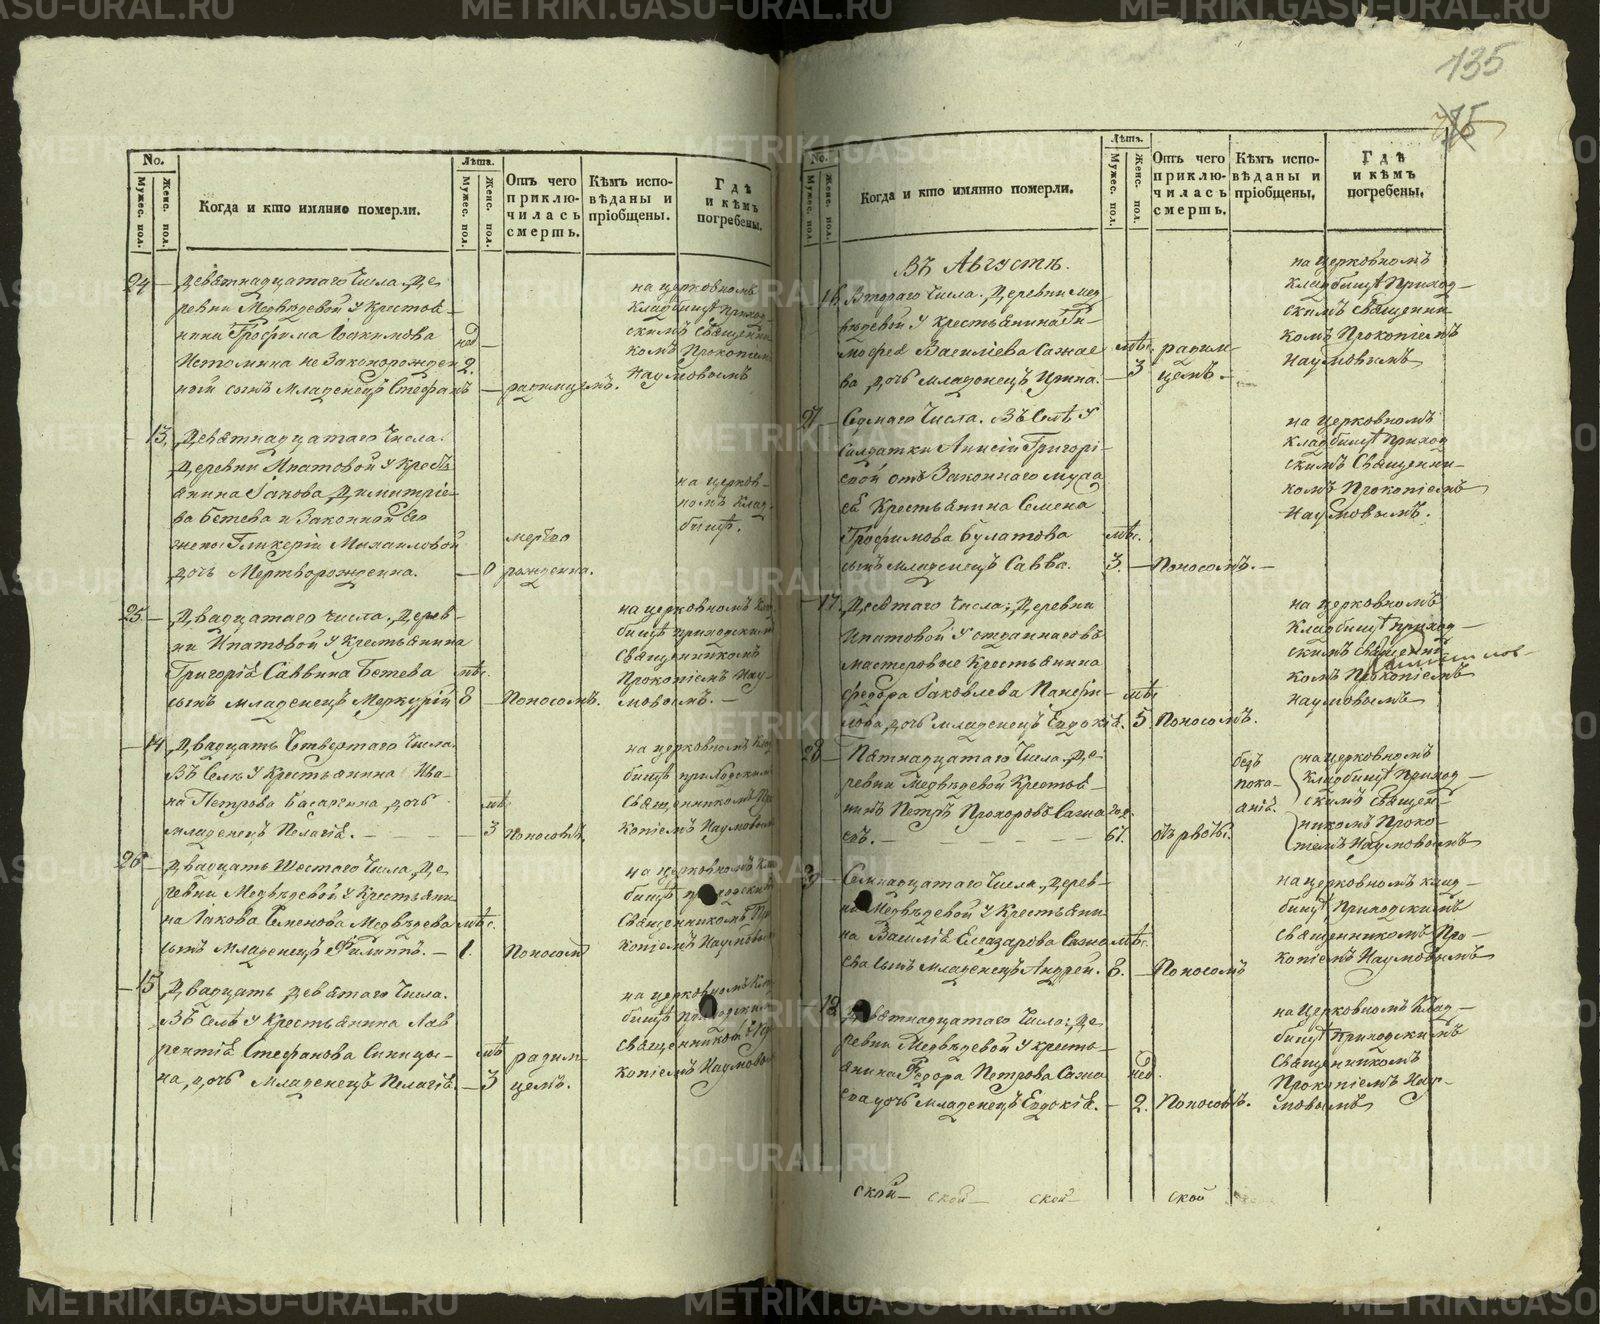 135
No.
Мужес. пол.
Женс. пол.
Когда и кто имянно померли.
Лѣта.
Мужес. пол.
Женс. пол.
Отъ чего приклю-
чилась смерть.
Кѣмъ испо-
вѣданы и пріобщены.
Гдѣ и кѣмъ погребены.
24 — Девятнадцатаго Числа, Де
ревни Медвѣдевой у Крестья —
нина Трофима
Истомина не Законорожден
ной сынъ Младенецъ Стефанъ
нед 2. — родимцемъ.
на церковномъ
кладбищѣ Приход
скимъ Священни
комъ Прокопіемъ
Наумовымъ
— 13. Девятнадцатаго Числа.
Деревни Ипатовой у Кресть
янина Іакова Димитріе-
ва Бетева и Законной Его
жены Гликеріи Михаиловой
дочь Мертворожденна.
— 0 мертво
рожденна.
на церков-
номъ Клад-
бищѣ.
25. — Двадцатаго числа. Дерев-
ни Ипатовой у Крестьянина
Григорія Саввина Бетева
сынъ младенецъ Меркурій
мѣс. 8 — Поносомъ.
на церковномъ Клад
бищѣ приходскимъ
Священникомъ
Прокопіемъ Нау-
мовымъ. —
— 14 Двадцать Четвертаго Числа.
Въ Селѣ у Крестьянина Ива-
на Петрова Басаргина, дочь
младенецъ Пелагія. —
мѣс — 3 Поносомъ.
на церковномъ Клад
бищѣ приходскимъ
Священникомъ Про
копіемъ Наумовымъ
26 — Двадцать Шестаго Числа, Де
ревни Медвѣдевой у Крестьяни
на Іакова Семенова Медвѣдева
сынъ Младенецъ Филиппъ. —
мѣс. 1. Поносомъ
на церковномъ Клад
бищѣ приходскимъ
Священникомъ Про
копіемъ Наумовымъ
— 15 Двадцать девятаго Числа.
Въ Селѣ у Крестьянина Лав
рентія Стефанова Синицы-
на, дочь Младенецъ Пелагія.
мѣс — 3 родим-
цемъ.
на церковномъ Клад
бищѣ приходскимъ
Священникомъ Про
копіемъ Наумовымъ
No.
Мужес. пол.
Женс. пол.
Когда и кто имянно померли.
Лѣта.
Мужес. пол.
Женс. пол.
Отъ чего приклю-
чилась смерть.
Кѣмъ испо-
вѣданы и пріобщены.
Гдѣ и кѣмъ погребены.
Въ Августѣ.
16. Втораго Числа. Деревни Мед
вѣдевой у крестьянина Ти-
мофея Василіева Сажае
ва, дочь младенецъ
мѣс. — 3 родим-
цемъ. —
на церковномъ
кладбищѣ Приход —
скимъ Священни-
комъ Прокопіемъ
Наумовымъ
27 — Седмаго Числа. Въ Селѣ у
Солдатки Анисіи Григорі-
евой отъ Законнаго мужа
ея Крестьянина Семена
Трофимова Булатова
сынъ младенецъ Савва.
мѣс. 3. — Поносомъ. —
на церковномъ
кладбищѣ Приход
скимъ Священни-
комъ Прокопіемъ
Наумовымъ.
— 17. Десятаго Числа, Деревни
Ипатовой у отданнаго въ
мастеровые Крестьянина
Федора Іаковлева Панфи-
лова, дочь младенецъ Евдокія.
мѣс 5 Поносомъ.
на церковномъ
Кладбищѣ приход —
скимъ Священни
комъ Прокопіемъ
Наумовымъ
28 — Пятнадцатаго Числа, Де-
ревни Медвѣдевой Крестья —
нинъ Петръ Прохоровъ Сажа
евъ. —
год. 61. отъ рвоты.
безъ
пока-
анія.
на церковномъ
кладбищѣ Приход —
скимъ Священ-
никомъ Проко-
піемъ Наумовымъ
29 — Семнадцатаго Числа, Дерев-
ни Медвѣдевой у Крестьяни
на Василія Елеазарова Сажа
ева сынъ младенецъ Андрей.
мѣс. 8. — Поносомъ
на церковномъ клад —
бищѣ Приходскимъ
Священникомъ Про-
копіемъ Наумовымъ
18. Девятнадцатаго Числа, Де
ревни Медвѣдевой у кресть-
янина Федора Петрова Сажа
ева дочь младенецъ Евдокія. —
нед. 2. Поносомъ.
на Церковномъ Клад —
бищѣ Приходскимъ
Священникомъ
Прокопіемъ Нау-
мовымъ
ской — ской — ской — ской